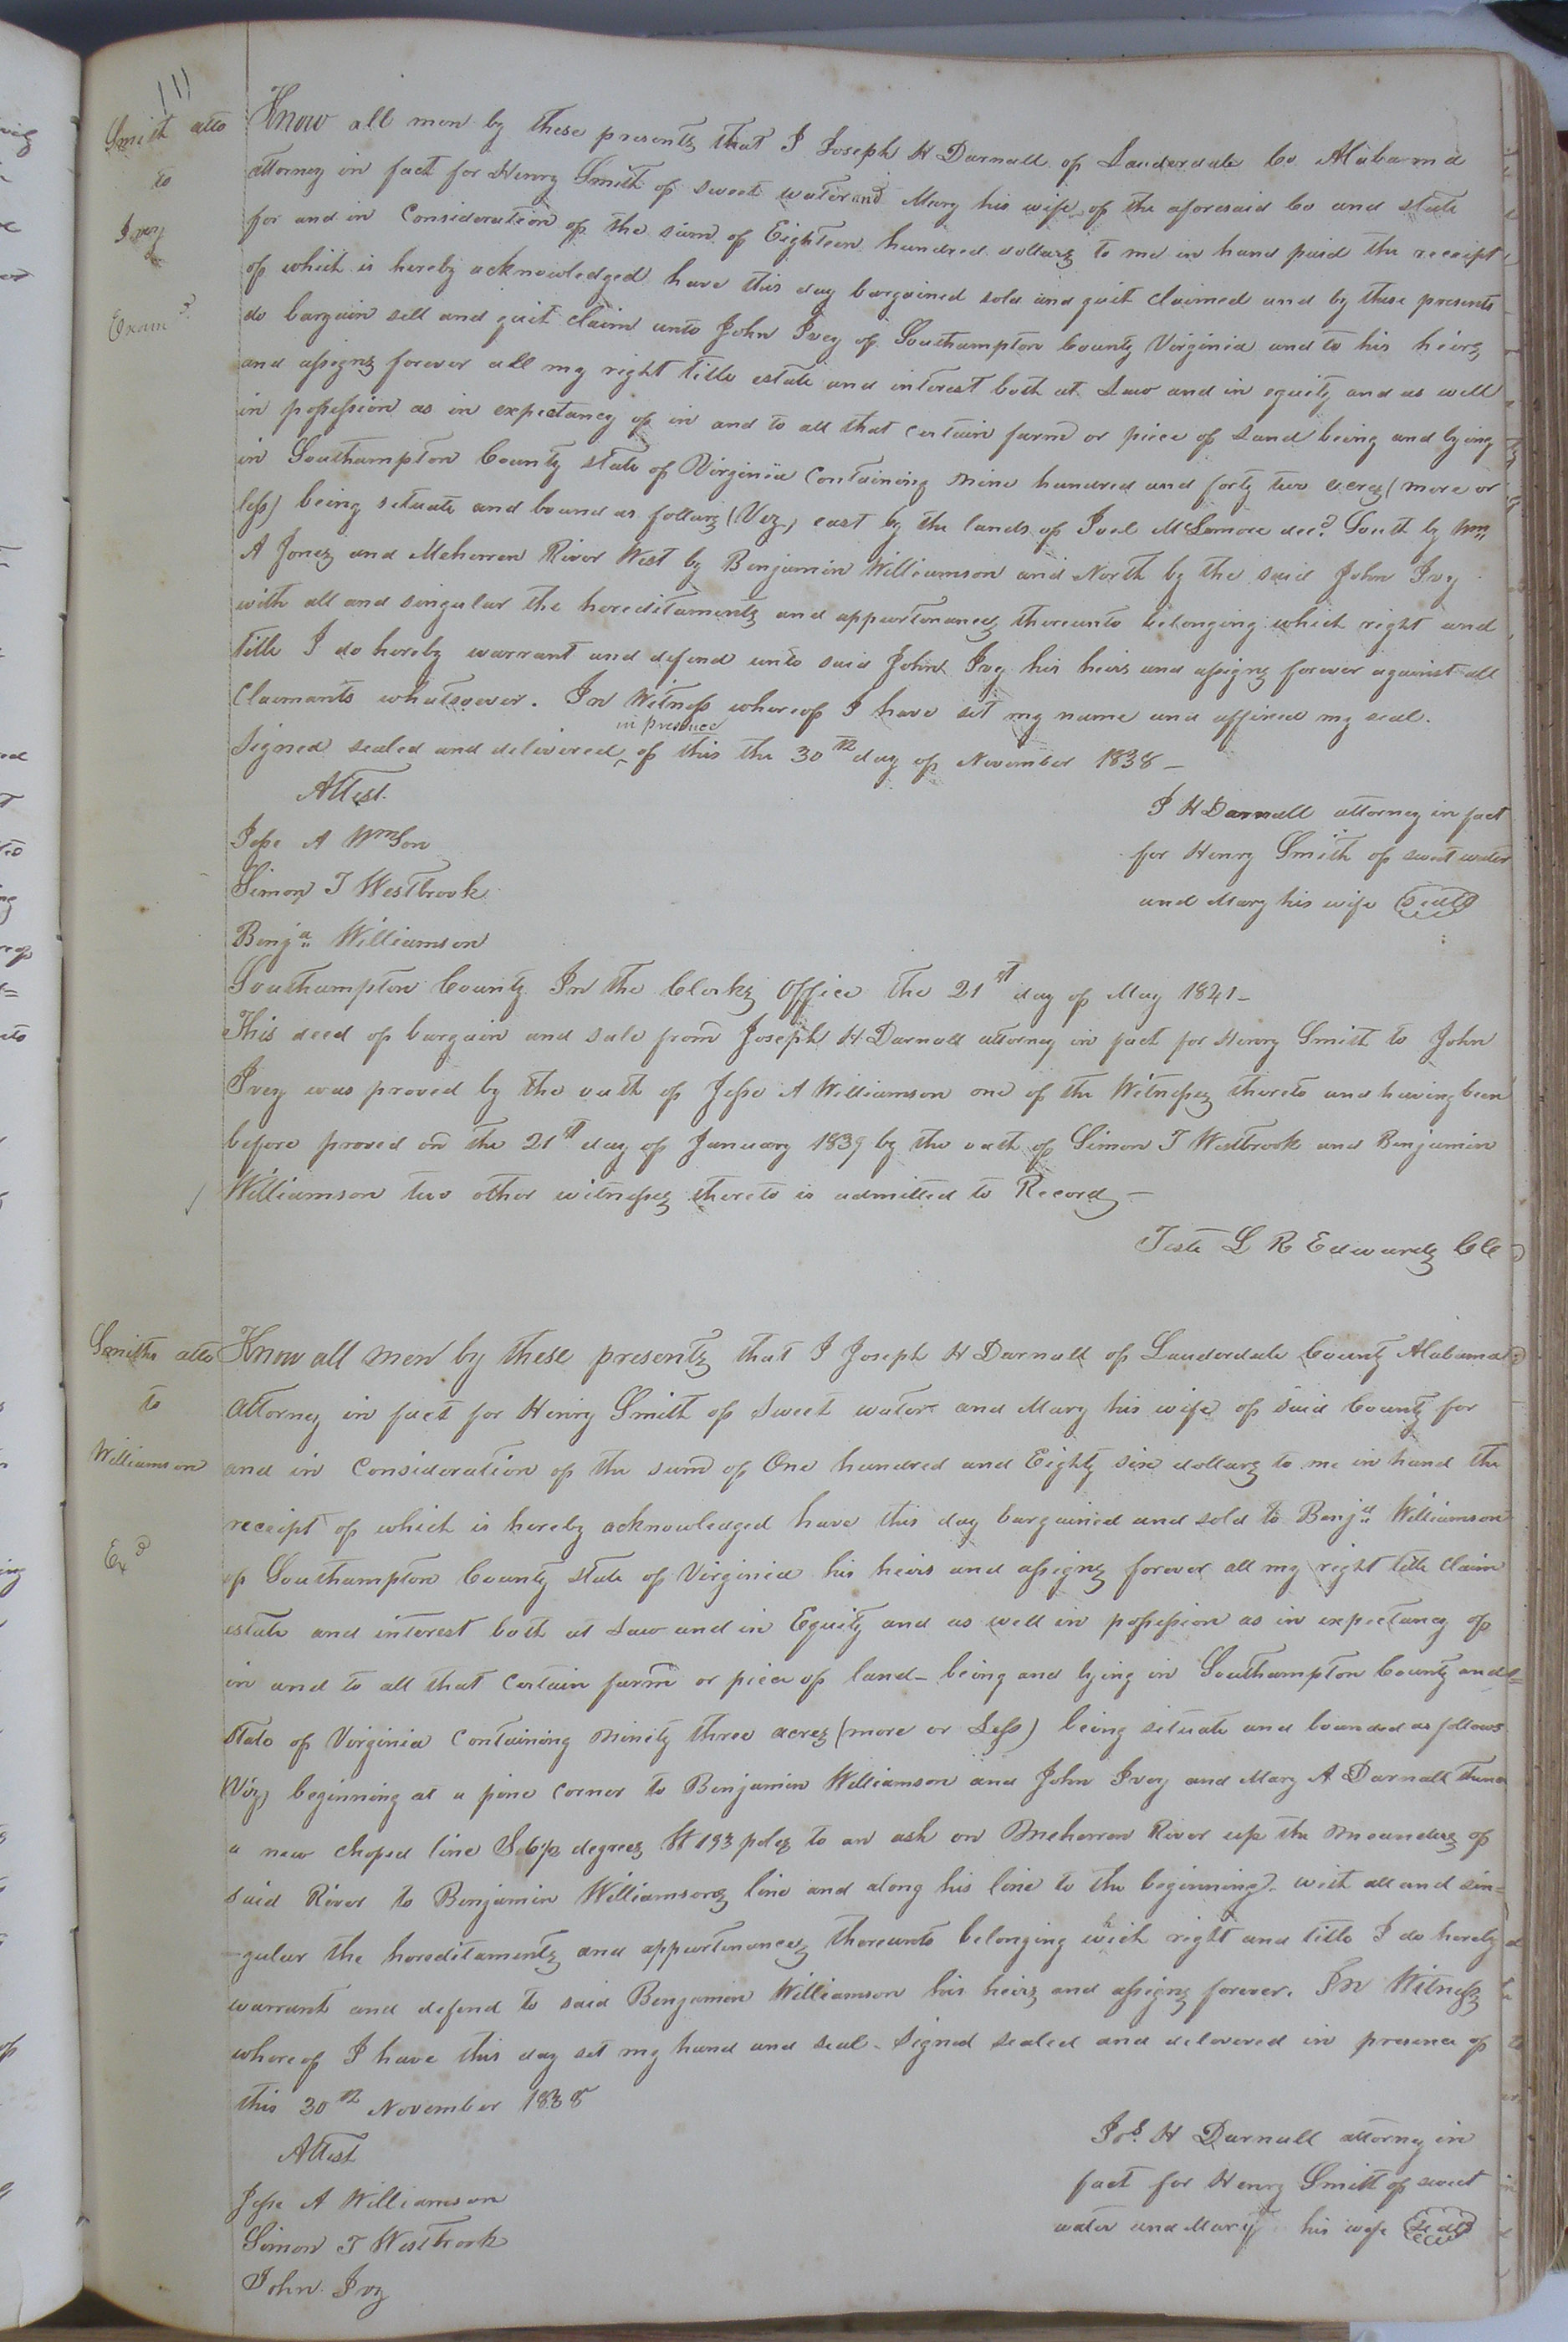 111
Smith atto
to
Ivey
Exam d
Know all men by these presents that I Joseph H Darnall of Lauderdale Co. Alabama
attorney in fact for Henry Smith of sweet water and Mary his wife of the aforesaid Co and state
for and in Consideration of the sum of Eighteen hundred dollars to me in hand paid the receipt
of which is hereby acknowledged have this day bargained sold and quit claimed and by these presents
do bargain sell and quit claim unto John Ivey of Southampton County Virginia and to his heirs
and assigns forever all my right title estate and interest both at Law and in equity and as well
in possession as in expectancy of in and to all that certain farm or piece of Land being and lying
in Southampton County state of Virginia Containing Nine hundred and forty two acres (more or
less) being situate and bound as follows (Viz, east by the lands of Joel McLemore decd South by Wm
A Jones and Meherren River West by Benjamin Williamson and North by the said John Ivy
with all and singular the hereditaments and appurtenances thereunto belonging which right and
title I do hereby warrant and defend unto said John Ivy his heirs and assigns forever against all
Claimants whatsoever. In Witness whereof I have set my name and affixed my seal.
in presence
Signed sealed and delivered ‸ of this the 30th day of November 1838 –
Attest.
J H Darnall attorney in fact
for Henry Smith of sweet water
and Mary his wife (Seal)
Jesse A WmSon
Simon T Westbrook
Benja Williamson
Southampton County In the Clerks Office the 21st day of May 1841 –
This deed of bargain and sale from Joseph H Darnall attorney in fact for Henry Smith to John
Ivey was proved by the oath of Jesse A Williamson one of the Witnesses thereto and having been
before proved on the 21st day of January 1839 by the oath of Simon T Westbrook and Benjamin
Williamson two other witnesses thereto is admitted to Record –
Teste L R Edwards CC
Smiths atto
to
Williamson
Exd
Know all men by these presents that I Joseph H Darnall of Lauderdale County Alabama
attorney in fact for Henry Smith of Sweet water and Mary his wife of said County for
and in Consideration of the sum of One hundred and Eighty six dollars to me in hand the
receipt of which is hereby acknowledged have this day bargained and sold to Benja Williamson
of Southampton County state of Virginia his heirs and assigns forever all my right title claim
estate and interest both at Law and in Equity and as well in possession as in expectancy of
in and to all that certain farm or piece of land – being and lying in Southampton County and
State of Virginia Containing Ninety three acres (more or Less) being situate and bounded as follows
(Viz) beginning at a pine corner to Benjamin Williamson and John Ivey and Mary A Darnall thence
a new choped line S 6½ degrees W 193 poles to an ash on Meherren River up the Meanders of
said River to Benjamin Williamsons line and along his line to the beginning. with all and sin=
-gular the hereditaments and appurtenances thereunto belonging which right and title I do hereby
warrant and defend to said Benjamin Williamson his heirs and assigns forever. In Witness
whereof I have this day set my hand and seal – Signed sealed and delivered in presence of
this 30th November 1838
Attest
Jos. H Darnall attorney in
fact for Henry Smith of sweet
water and Mary his wife (Seal)
Jesse A Williamson
Simon T Westbrook
John Ivy